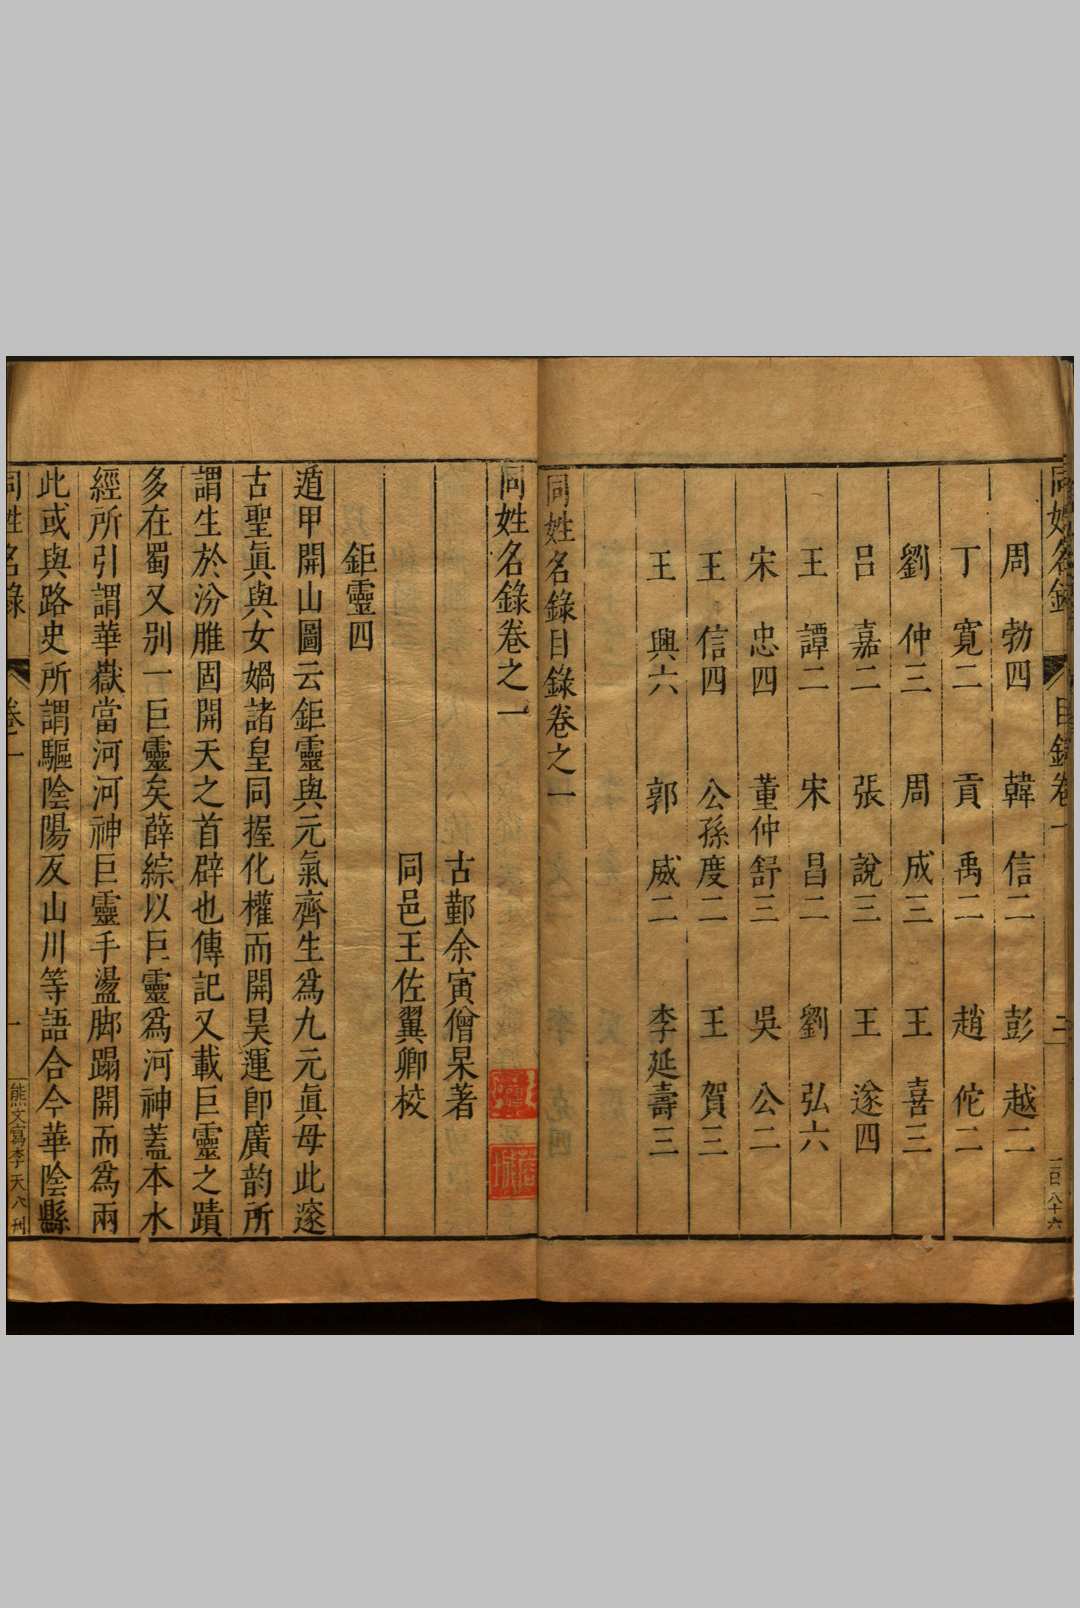 同姓名錄 目錄卷一 二 一百八十六
周勃四 韓信二 彭越二
丁寬二 貢禹二 趙佗二
劉仲三 周成三 王喜三
呂嘉二 張說三 王遂四
王譚二 宋昌二 劉弘六
宋忠四 董仲舒三 吳公二
王信四 公孫度二 王賀三
王興六 郭威二 李延壽三
同姓名錄目錄卷之一
同姓名錄卷之一
古鄞余寅僧杲著
同邑王佐翼卿校
鉅靈四
遁甲開山圖云鉅靈與元氣齊生爲九元眞母此邃
古聖眞與女媧諸皇同握化權而開昊運卽廣韵所
謂生於汾脽固開天之首辟也傳記又載巨靈之蹟
多在蜀又别一巨靈矣薛綜以巨靈爲河神蓋本水
經所引謂華嶽當河河神巨靈手盪脚蹋開而爲兩
此或與路史所謂驅陰陽反山川等語合今華陰縣
同姓名錄 卷一 一 熊文寫李天八刊